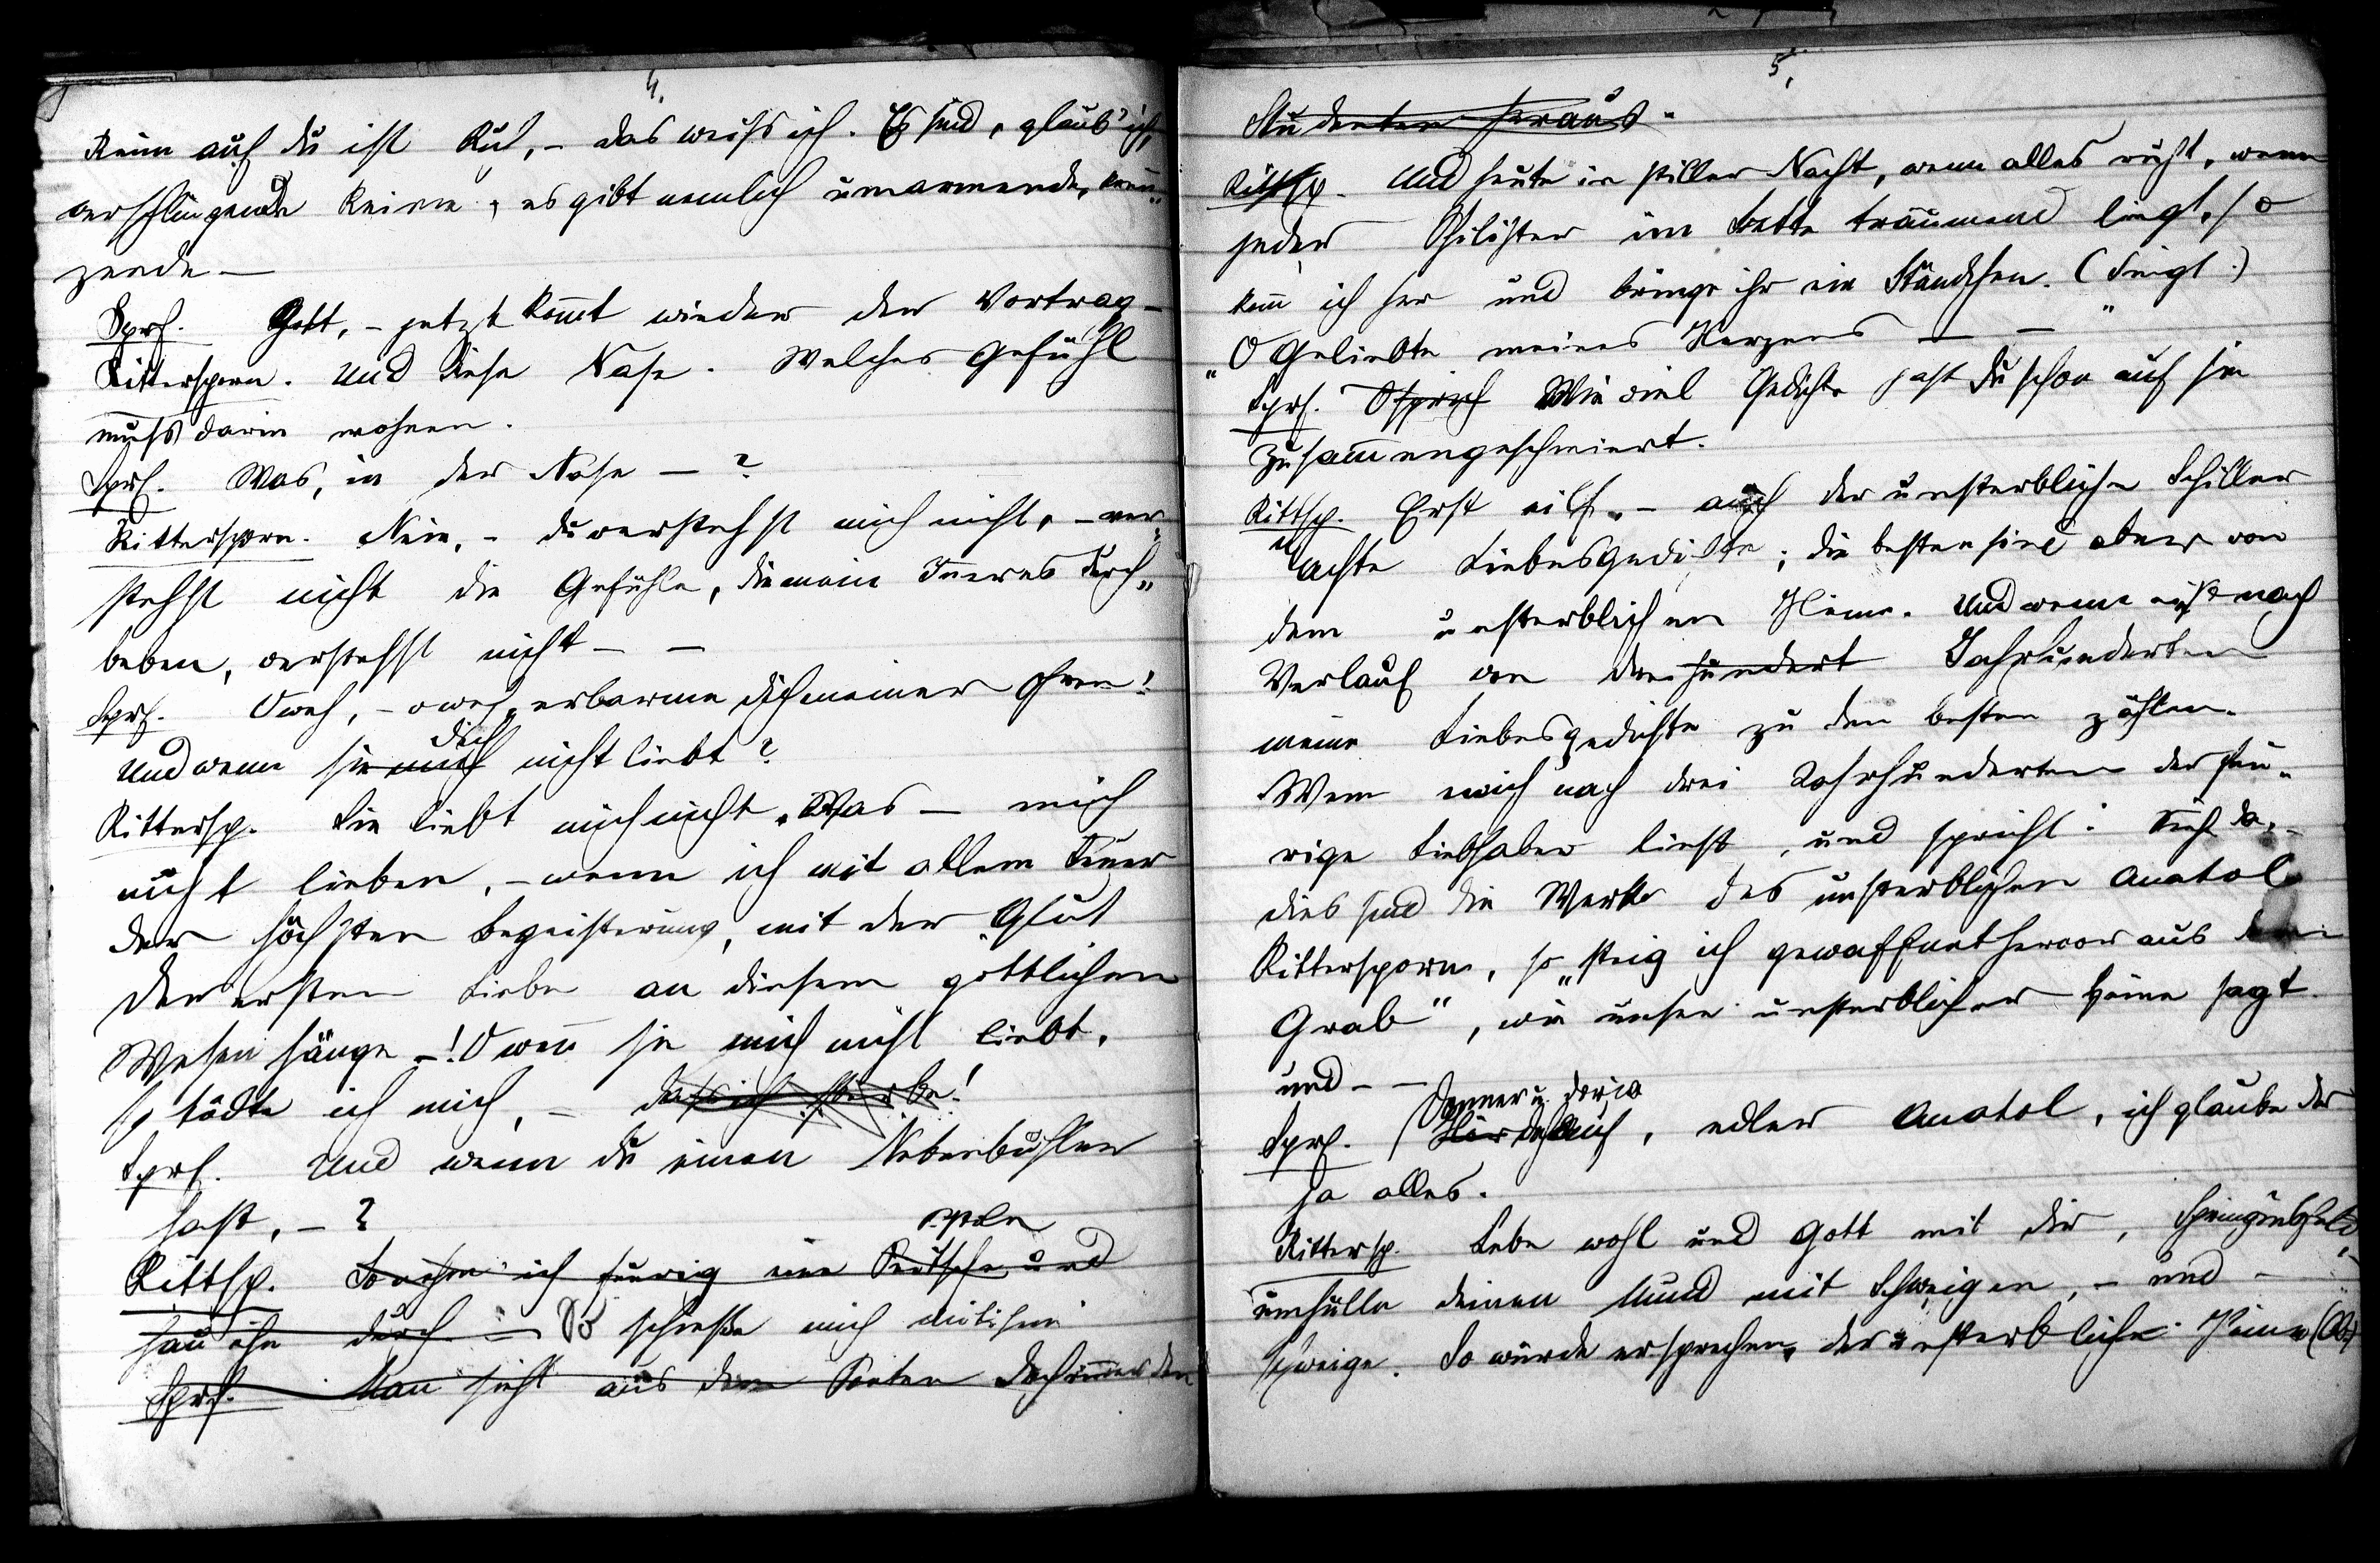 4.
Reim auf du ist Kuh, – das weiß ich. Es sind, glaub' ich,
verschlingende Reime, es gibt nemlich umarmende, kreu„
zende –
Sprf. Gott, – jetzt kom̄t wieder der Vortrag –
Rittersporn. Und diese Nase. Welches Gefühl
muß darin wohnen.
Sprf. Was, in der Nase – ?
Rittersporn. Nein, – du verstehst mich nicht, – ver„
stehst nicht die Gefühle, die mein Inneres durch„
beben, verstehst nicht – –
Sprf. O weh, – o weh, erbarme dich meiner Ohren!
dich
Und wenn sie mich nicht liebt?
Rittersp. Sie liebt mich nicht. Was – mich
nicht lieben, – wenn ich mit allem Feuer
der höchsten Begeisterung, mit der Glut
der ersten Liebe an diesem göttlichen
Wesen hänge –! O wen̄ sie mich nicht liebt,
so tödte ich mich, – daß ich sterbe!
Sprf. Und wenn du einen Nebenbuhler
hast, – ?
Rittsp. So nehm' ich feurig eine Peitsche und
hau ihn durch – So schieße mich mit ihm
Sprf. Man sieht aus dem Poeten doch immer den
5.
Studenten heraus.
Rittsp. Und heute in stiller Nacht, wenn alles ruht, wenn
jeder Philister im Bette träumend liegt, so
kom̄ ich her und bringe ihr ein Ständchen. (Singt.)
„O Geliebte meines Herzens – – "
Sprf. Wie viel Gedichte hast du schon auf sie
zusam̄engeschmiert.
Rittsp. Erst eilf. – auch der unsterbliche Schiller
machte Liebesgedichte; die besten sind aber von
dem unsterblichen Heine. Und wenn nach
Verlauf von drei hundert Jahrhunderten
meine Liebesgedichte zu den besten zählen.
Wenn mich nach drei Jahrhunderten der feu„
rige Liebhaber liest, und spricht: Sieh da, –
dies sind die Werke des unsterblichen Anatol
Rittersporn, so „steig ich gewaffnet hervor aus dem
Grab", wie unser unsterblicher Heine sagt.
und – –
Donner u. Doria
Sprf. , edler Anatol, ich glaube dir
ja alles.
Rittersp. Lebe wohl und Gott mit dir, Springinsfeld,
umhülle deinen Mund mit Schweigen, – und –
schweige. So würde er sprechen, der unsterbliche Heine (Ab)